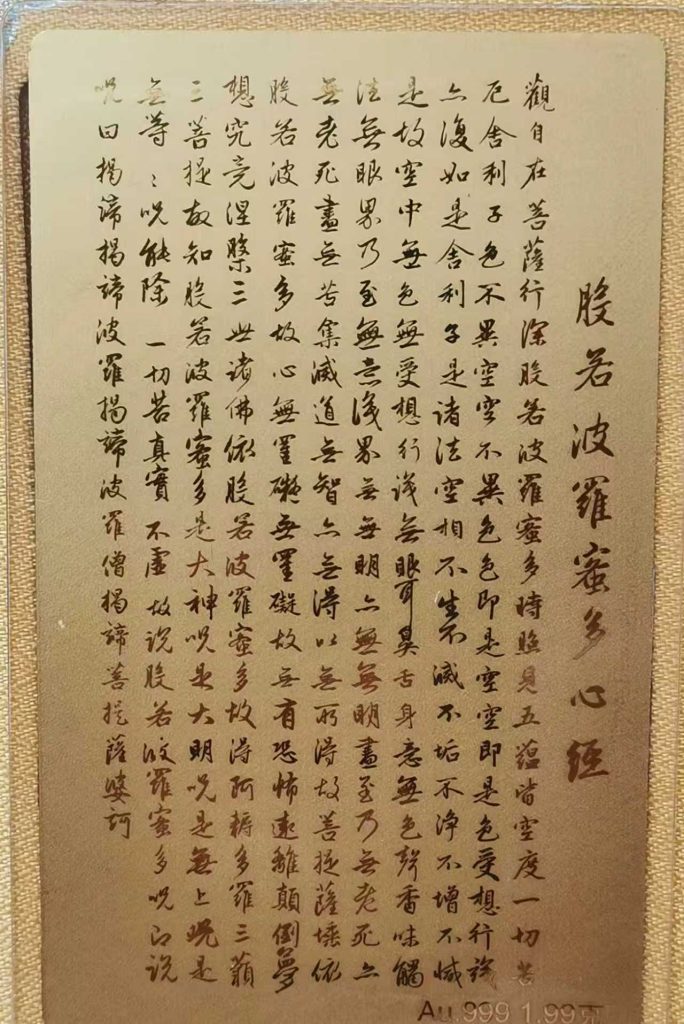 般若波羅蜜多心經
觀自在菩薩行深般若波羅蜜多時照見五蘊皆空度一切苦
厄舍利子色不異空空不異色色即是空空即是色受想行識
亦復如是舍利子是諸法空相不生不滅不垢不淨不增不減
是故空中無色無受想行識無眼耳鼻舌身意無色聲香味觸
法無眼界乃至無意識界無無明亦無無明盡至乃無老死亦
無老死盡無苦集滅道無智亦無得以無所得故菩提薩埵依
般若波羅蜜多故心無罣礙無罣礙故無有恐怖遠離顛倒夢
想究竟涅槃三世諸佛依般若波羅蜜多故得阿耨多羅三藐
三菩提故知般若波羅蜜多是大神咒是大明咒是無上咒是
無等々咒能除一切苦真實不虛故說般若波羅蜜多咒即說
咒曰揭諦揭諦波羅揭諦波羅僧揭諦菩提薩婆訶
Au.999 1.99克